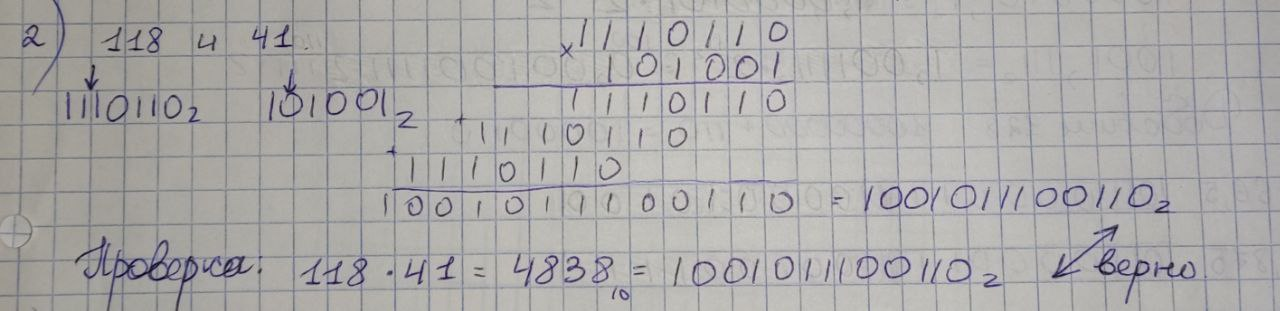 2) 118 и 41.
1110110₂ 101001₂
× 1110110
101001
1110110
+ 1110110
+ 1110110
1001011100110 = 1001011100110₂
Проверка: 118 · 41 = 4838₁₀ = 1001011100110₂ верно